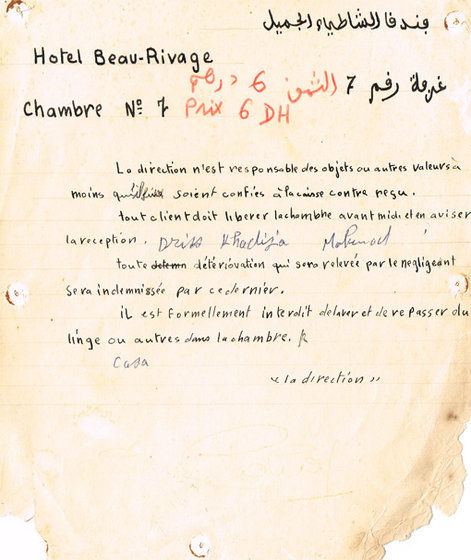 فندق الشاطيء الجميل
Hotel Beau-Rivage
غرفة رقم 7 الثمن 6 درهم
Chambre Nº 7 Prix 6 DH
La direction n'est responsable des objets ou autres valeurs à
moins qu'ils soient confiés à la caisse contre reçu.
tout client doit liberer la chambre avant midi et en aviser
la reception. Driss Khadija
toute détérioration qui sera relevée par le negligeant
sera indemnissée par ce dernier.
il est formellement interdit de laver et de repasser du
linge ou autres dans la chambre.
Casa
"la direction"